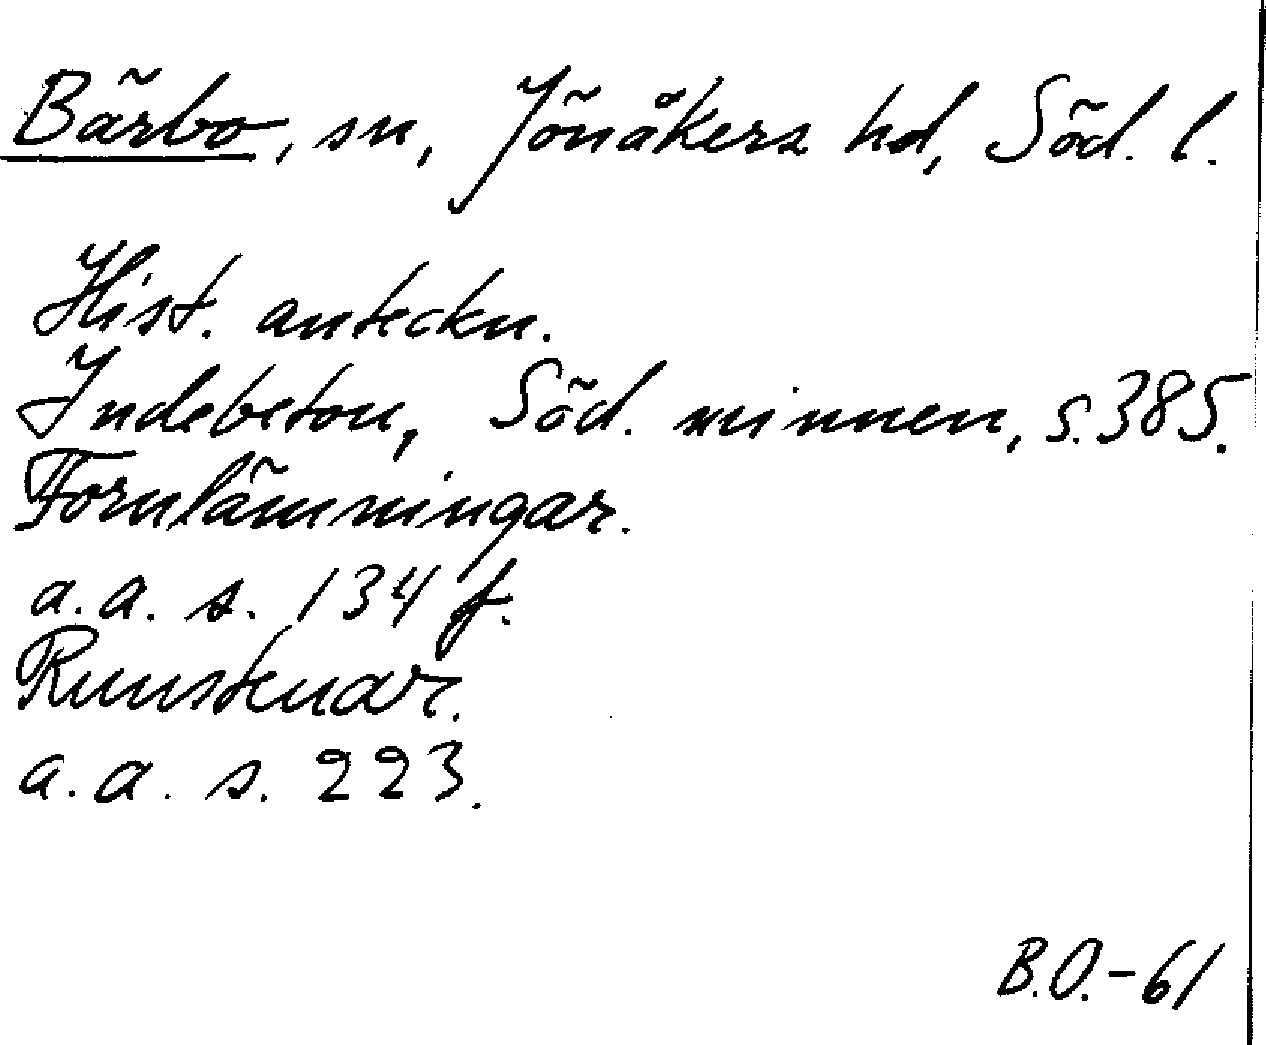 Bärbo, sn, Jönåkers hd, Söd. l.
Hist. anteckn.
Indebetou, Söd. minnen, s. 385.
Fornlämningar.
a.a. s. 134 f.
Runstenar.
a.a. s. 223.
B.O.-61